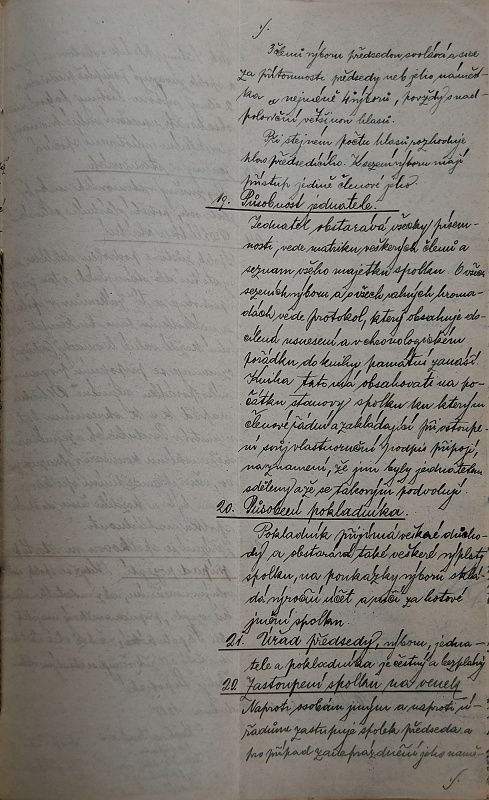 Schůzi výboru předsedou svolává a sice
za přítomnosti předsedy neb jeho náměst-
ka a nejméně 4 výborů, povždy s nad
poloviční většinou hlasů.
Při stejném počtu hlasů rozhoduje
hlas předsedního. K sezení výboru mají
přístup jedině členové jeho.
19. Působnost jednatele.
Jednatel obstarává všecky písem-
nosti, vede matriku veškerých členů a
seznam všeho majetku spolku. O všech
sezeních výboru a všech valných hroma-
dách vede protokol, který obsahuje do-
cílená usnesení a v chronologickém
pořádku do knihy památní zanáší.
Kniha tato má obsahovati na po-
čátku stanovy spolku ku kterým
členové řádní a zakládající při ostoupe-
ní svůj vlastnoruční podpis připojí,
na znamení, že jim byly jednatelem
sděleny a že se takovým podvolují.
20. Působení pokladníka.
Pokladník přijímá veškeré důcho-
dy a obstarává také veškeré výplaty
spolku, na poukázky výboru sklá-
dá výroční účet a ručí za hotové
jmění spolku.
21. Úřad předsedy, výboru, jedna-
tele a pokladníka je čestný a bezplatný
22. Zastoupení spolku na venek
Naproti osobám jiným a naproti ú-
řadům zastupuje spolek předseda a
pro případ zaneprázdnění jeho namě-